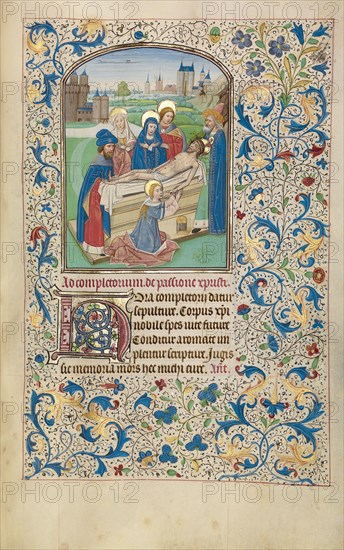 Ad completorium. de passione xpristi.
Hora completorij datur
sepulture. Corpus xpi
nobile spes vite future
Conditur aromate im
plentur scripture. Jugis
sic memoria mors hec michi cure. Ant.
PHOTO12